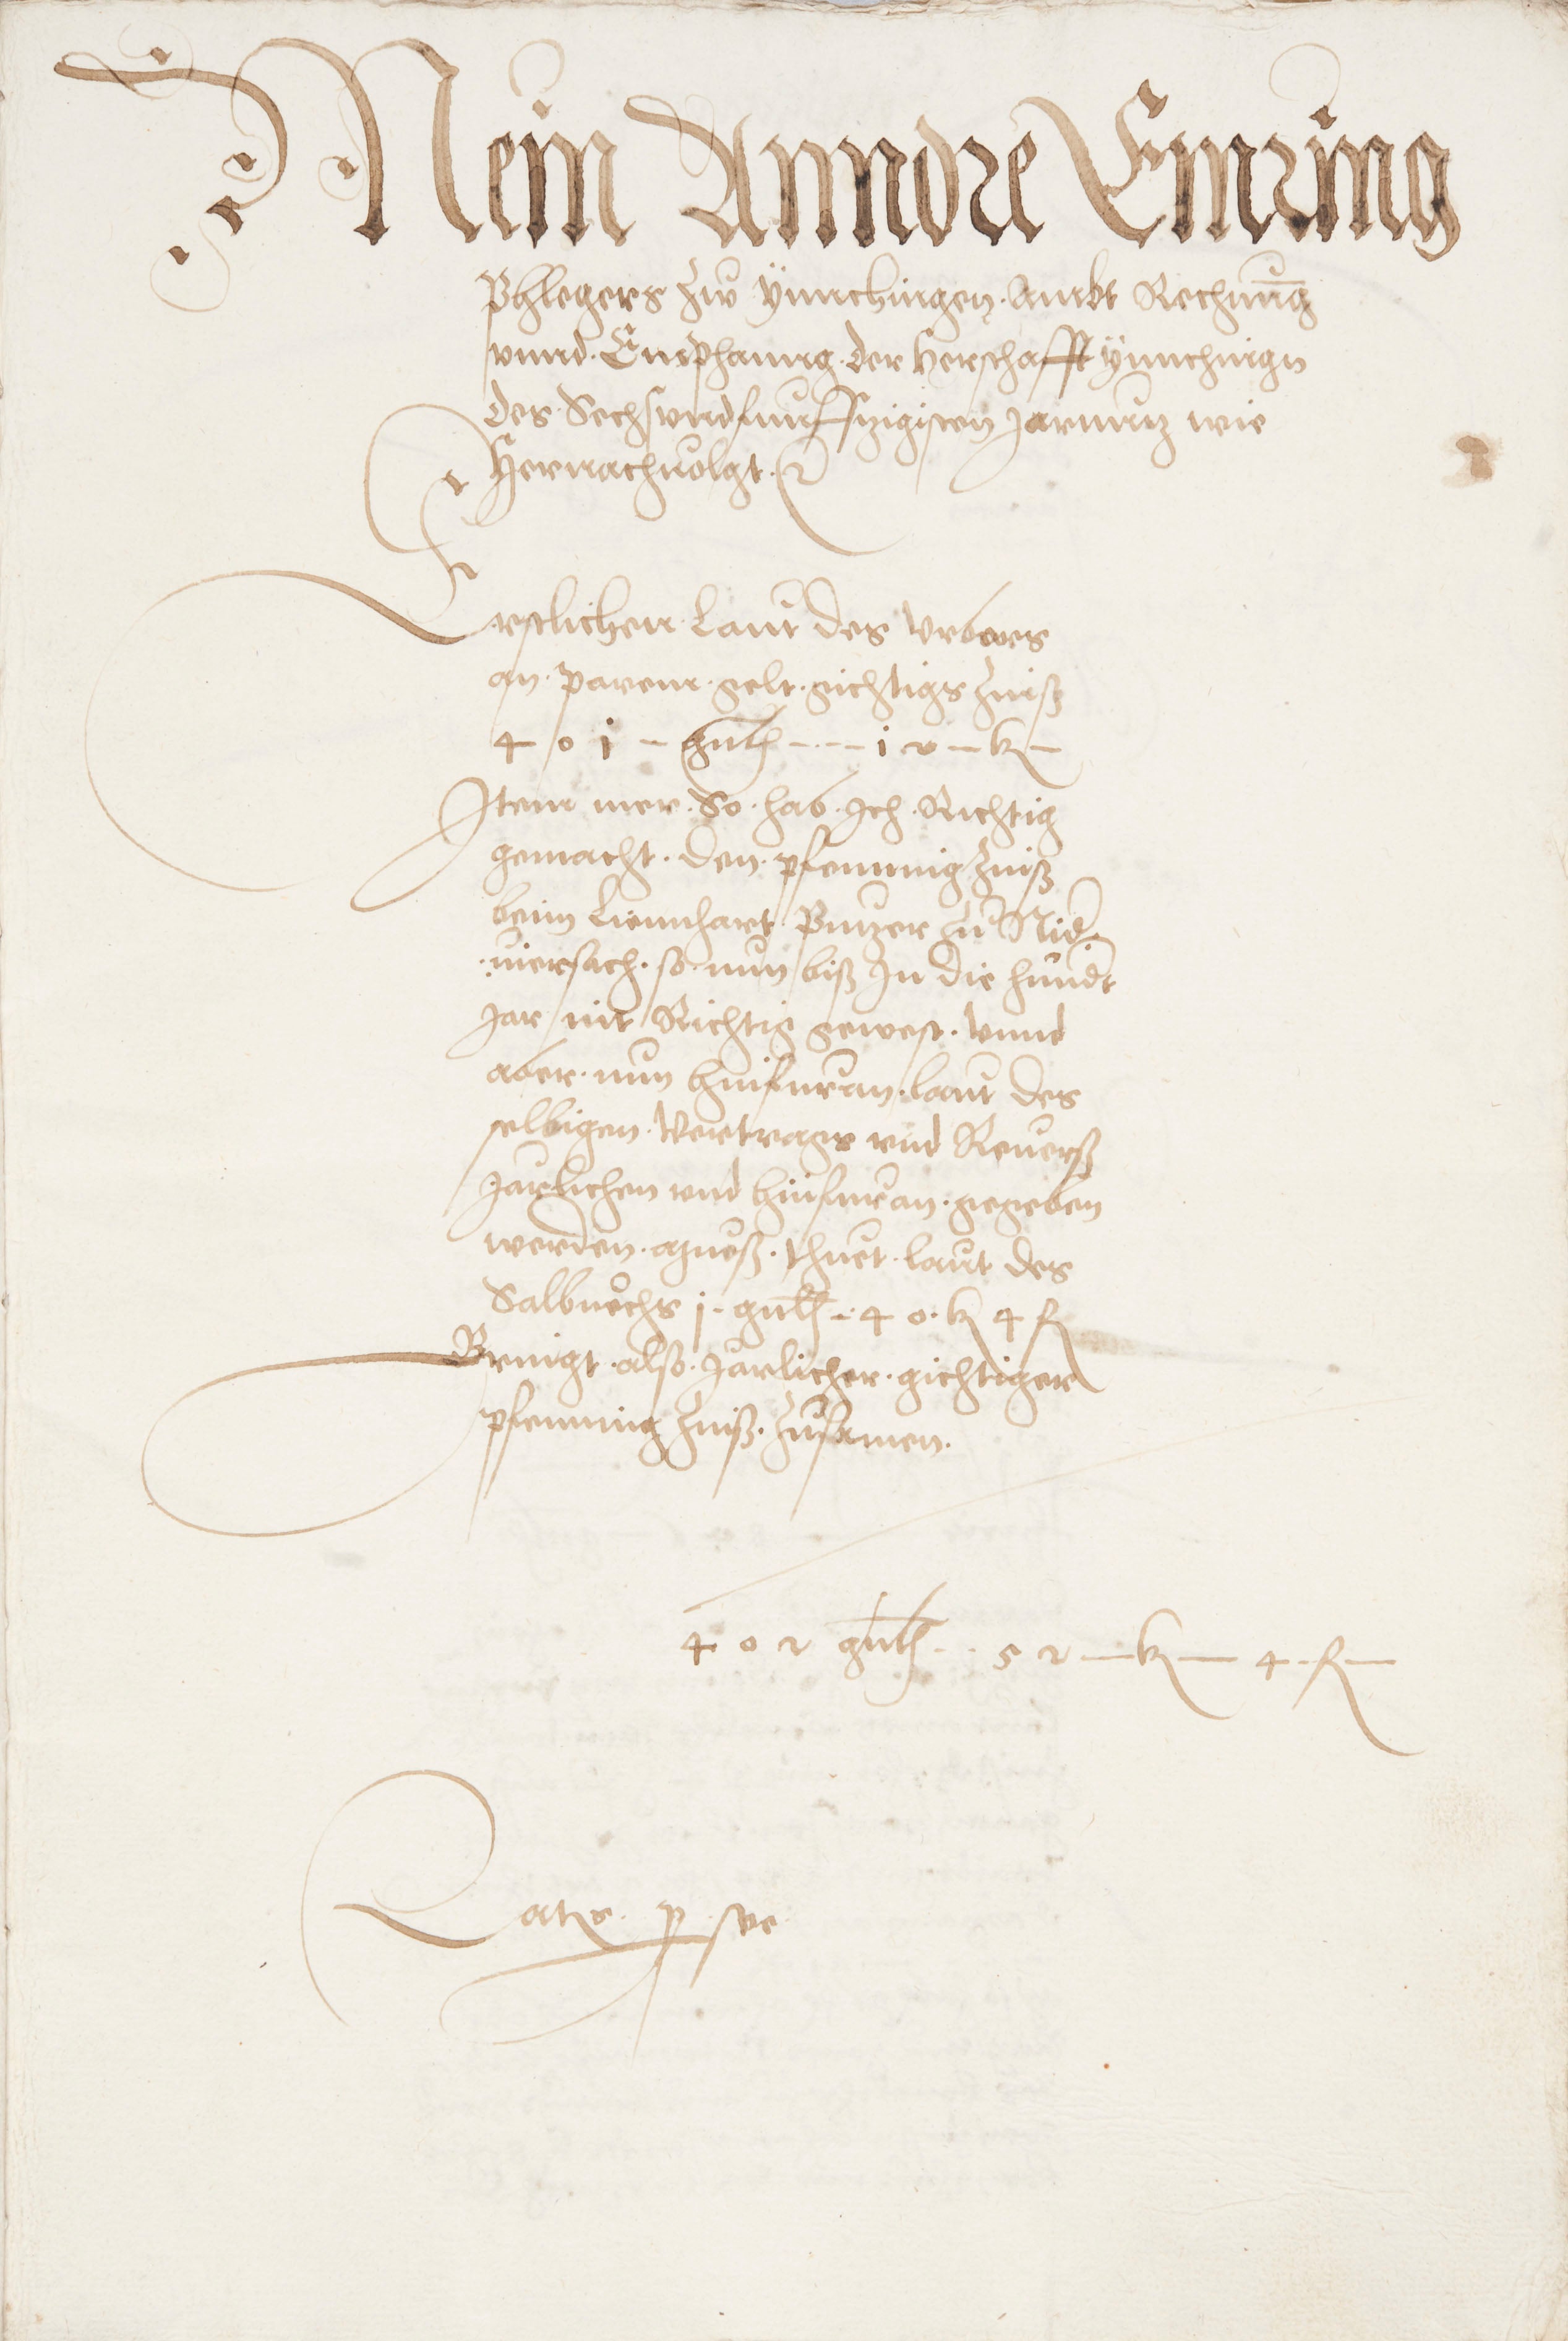 Mein Anndre Emring
Phlegers zw Ÿmchingen Ambt Rechnung
vnnd Emphanng der Herschafft Ÿmchingn
des Sechsvndfunffzigisten Jarnutz wie
Hernachuolgt
Erstlichen Laut des Vrbars
an parem gelt gichtigs Zinß
4 0 j guld 1 2 k
Item mer So hab Ich Richtig
gemacht den pfenning Zinß
beim Liennhart Putzer zu Nid
viersach so nun biß In die hundt
Jar nit Richtig gewest vnnd
aber nun hinfuran laut des
selbigen Vertrags vnd Reuerß
Jarlichen vnd hinfuran gegeben
werden mueß thuet laut des
Salbuechs j guld 4 0 k 4 f
Bringt also Jarlicher gichtiger
pfenning Zinß Zusamen
4 0 2 guld 5 2 k 4 f
Latus p se